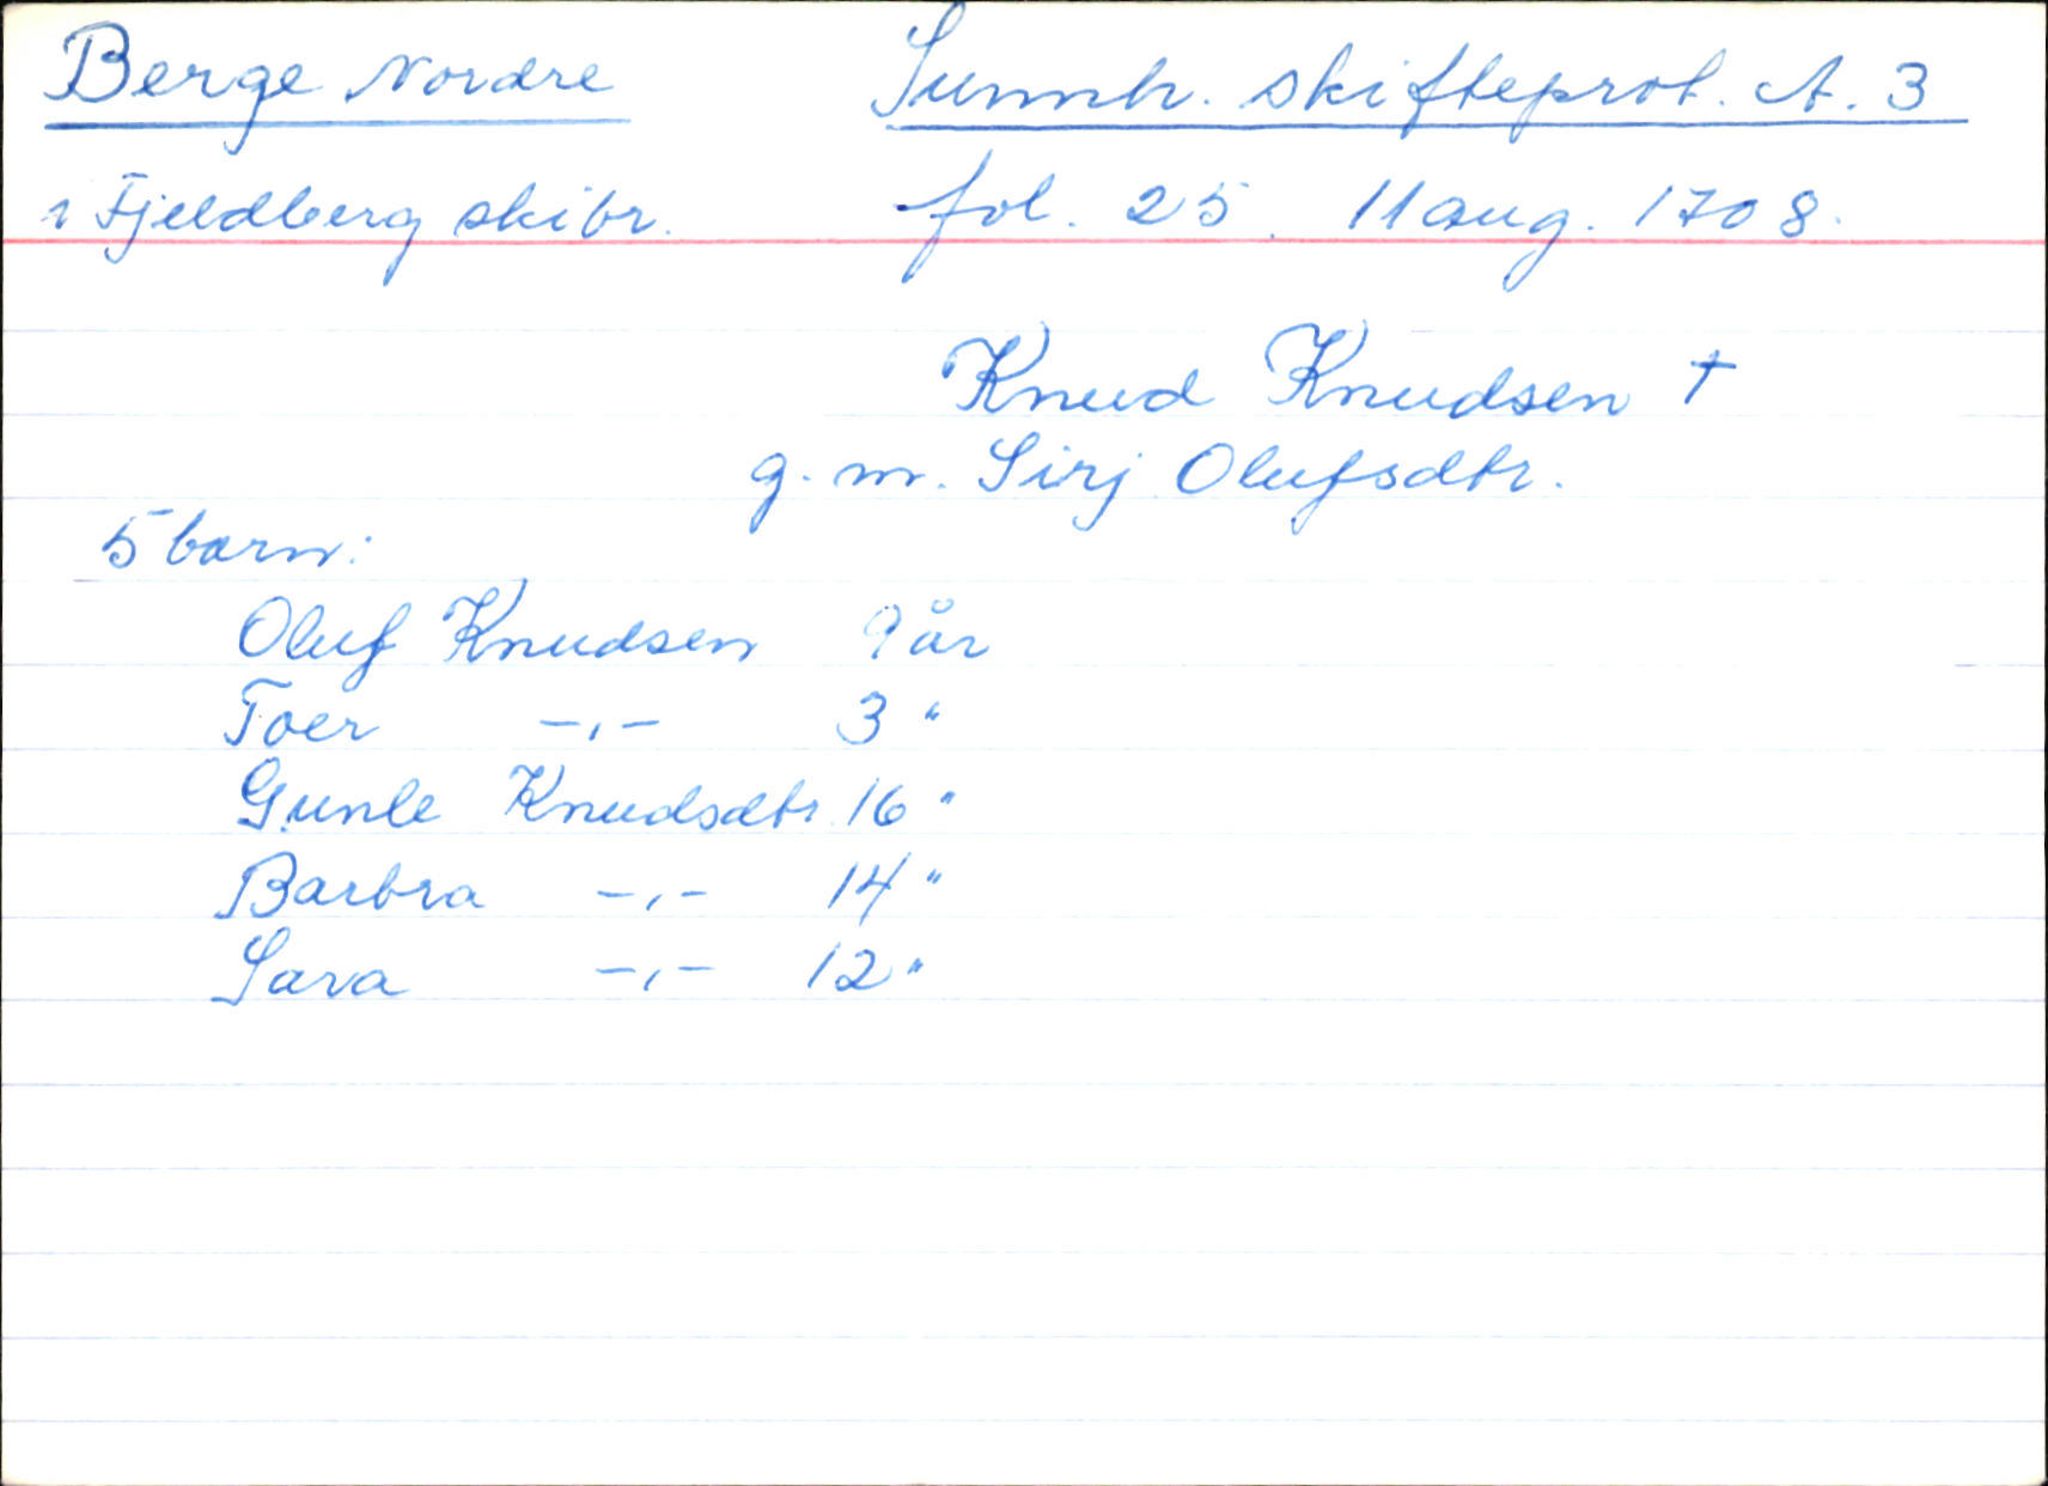 Berge Nordre
Sunnh. skifteprot. A. 3
i Fjeldberg skibr.
fol. 25. 11 aug. 1708.
Knud Knudsen †
g. m. Sirj Olufsdtr.
5 barn:
Oluf Knudsen 9 år
Toer -,- 3 "
Gunle Knudsdtr 16 "
Barbra -,- 14 "
Sara -,- 12 "